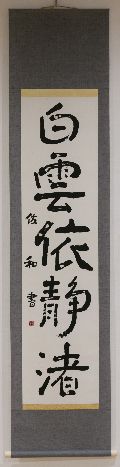 白雲依静渚
佐和書